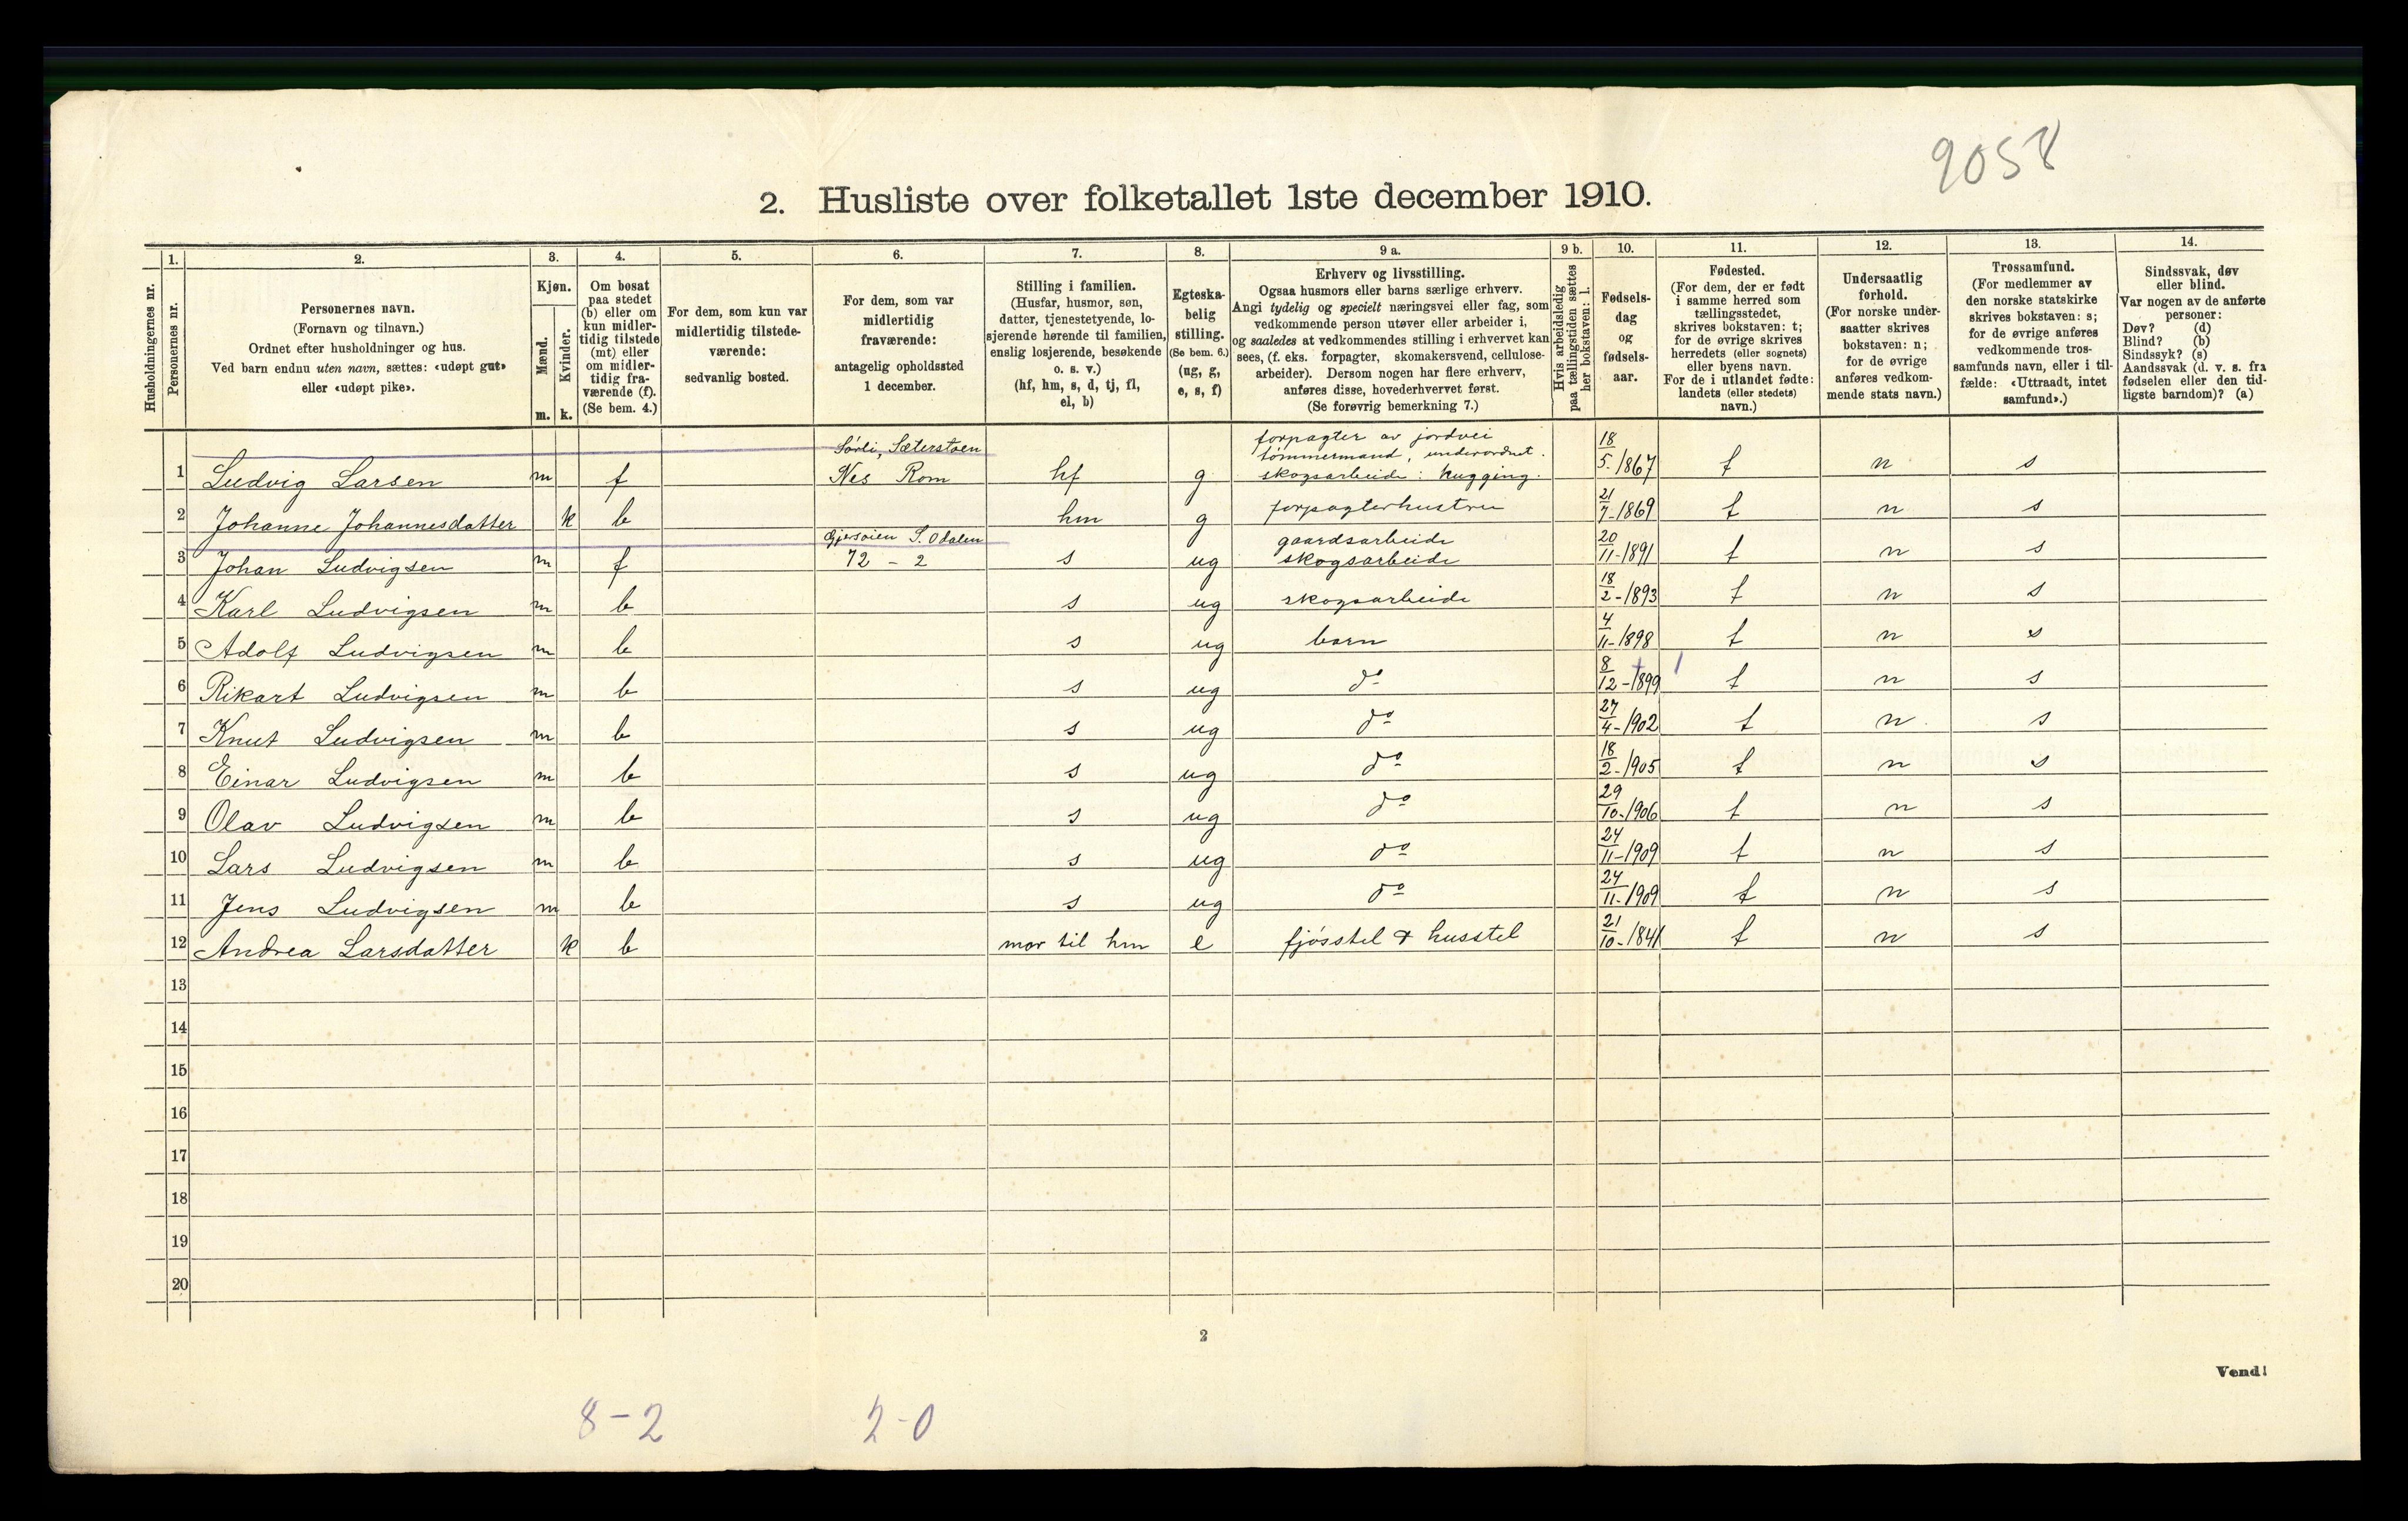 9058
2. Husliste over folketallet 1ste december 1910.
Husholdningernes nr.
1.
Personernes nr.
2.
Personernes navn.
(Fornavn og tilnavn.)
Ordnet efter husholdninger og hus.
Ved barn endnu uten navn, sættes: «udøpt gut»
eller «udøpt pike».
3.
Kjøn.
Mænd.
Kvinder.
m. k.
4.
Om bosat
paa stedet
(b) eller om
kun midler-
tidig tilstede
(mt) eller
om midler-
tidig fra-
værende (f).
(Se bem. 4.)
5.
For dem, som kun var
midlertidig tilstede-
værende:
sedvanlig bosted.
6.
For dem, som var
midlertidig
fraværende:
antagelig opholdssted
1 december.
7.
Stilling i familien.
(Husfar, husmor, søn,
datter, tjenestetyende, lo-
sjerende hørende til familien,
enslig losjerende, besøkende
o. s. v.)
(hf, hm, s, d, tj, fl,
el, b)
8.
Egteska-
belig
stilling.
(Se bem. 6.)
(ug, g,
e, s, f)
9 a.
Erhverv og livsstilling.
Ogsaa husmors eller barns særlige erhverv.
Angi tydelig og specielt næringsvei eller fag, som
vedkommende person utøver eller arbeider i,
og saaledes at vedkommendes stilling i erhvervet kan
sees, (f. eks. forpagter, skomakersvend, cellulose-
arbeider). Dersom nogen har flere erhverv,
anføres disse, hovederhvervet først.
(Se forøvrig bemerkning 7.)
9 b.
Hvis arbeidsledig
paa tællingstiden sættes
her bokstaven: l.
10.
Fødsels-
dag
og
fødsels-
aar.
11.
Fødested.
(For dem, der er født
i samme herred som
tællingsstedet,
skrives bokstaven: t;
for de øvrige skrives
herredets (eller sognets)
eller byens navn.
For de i utlandet fødte:
landets (eller stedets)
navn.)
12.
Undersaatlig
forhold.
(For norske under-
saatter skrives
bokstaven: n;
for de øvrige
anføres vedkom-
mende stats navn.)
13.
Trossamfund.
(For medlemmer av
den norske statskirke
skrives bokstaven: s;
for de øvrige anføres
vedkommende tros-
samfunds navn, eller i til-
fælde: «Uttraadt, intet
samfund».)
14.
Sindssvak, døv
eller blind.
Var nogen av de anførte
personer:
Døv? (d)
Blind? (b)
Sindssyk? (s)
Aandssvak (d. v. s. fra
fødselen eller den tid-
ligste barndom)? (a)
Sørli, Sæterstøen forpagter av jordvei
tømmermand, underordnet.
1 Ludvig Larsen m f Nes Rom hf g skogsarbeide: hugging. 18/5-1867 t n s
2 Johanne Johannesdatter k b hm g forpagterhustru 21/7-1869 t n s
Gjersøien S. Odalen gaardsarbeide
3 Johan Ludvigsen m f 72 - 2 s ug skogsarbeide 20/11-1891 t n s
4 Karl Ludvigsen m b s ug skogsarbeide 18/2-1893 t n s
5 Adolf Ludvigsen m b s ug barn 4/11-1898 t n s
6 Rikart Ludvigsen m b s ug do 8/12-1899 t n s
7 Knut Ludvigsen m b s ug do 27/4-1902 t n s
8 Einar Ludvigsen m b s ug do 18/2-1905 t n s
9 Olav Ludvigsen m b s ug do 29/10-1906 t n s
10 Lars Ludvigsen m b s ug do 24/11-1909 t n s
11 Jens Ludvigsen m b s ug do 24/11-1909 t n s
12 Andrea Larsdatter k b mor til hm e fjøsstel & husstel 21/10-1841 t n s
13
14
15
16
17
18
19
20
2
Vend!
8-2 2-0